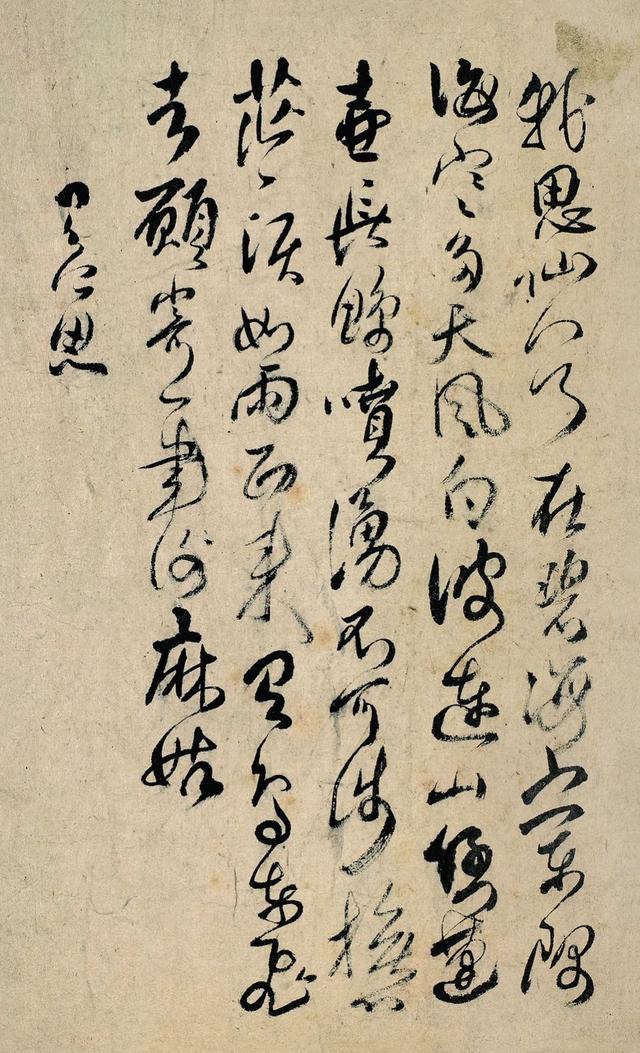 我思仙人乃在碧海之東隅
海寒多天風白波連山倒蓬
壺長鯨噴湧不可涉撫心
茫茫淚如雨西來青鳥東飛
去願寄一書謝麻姑
有所思